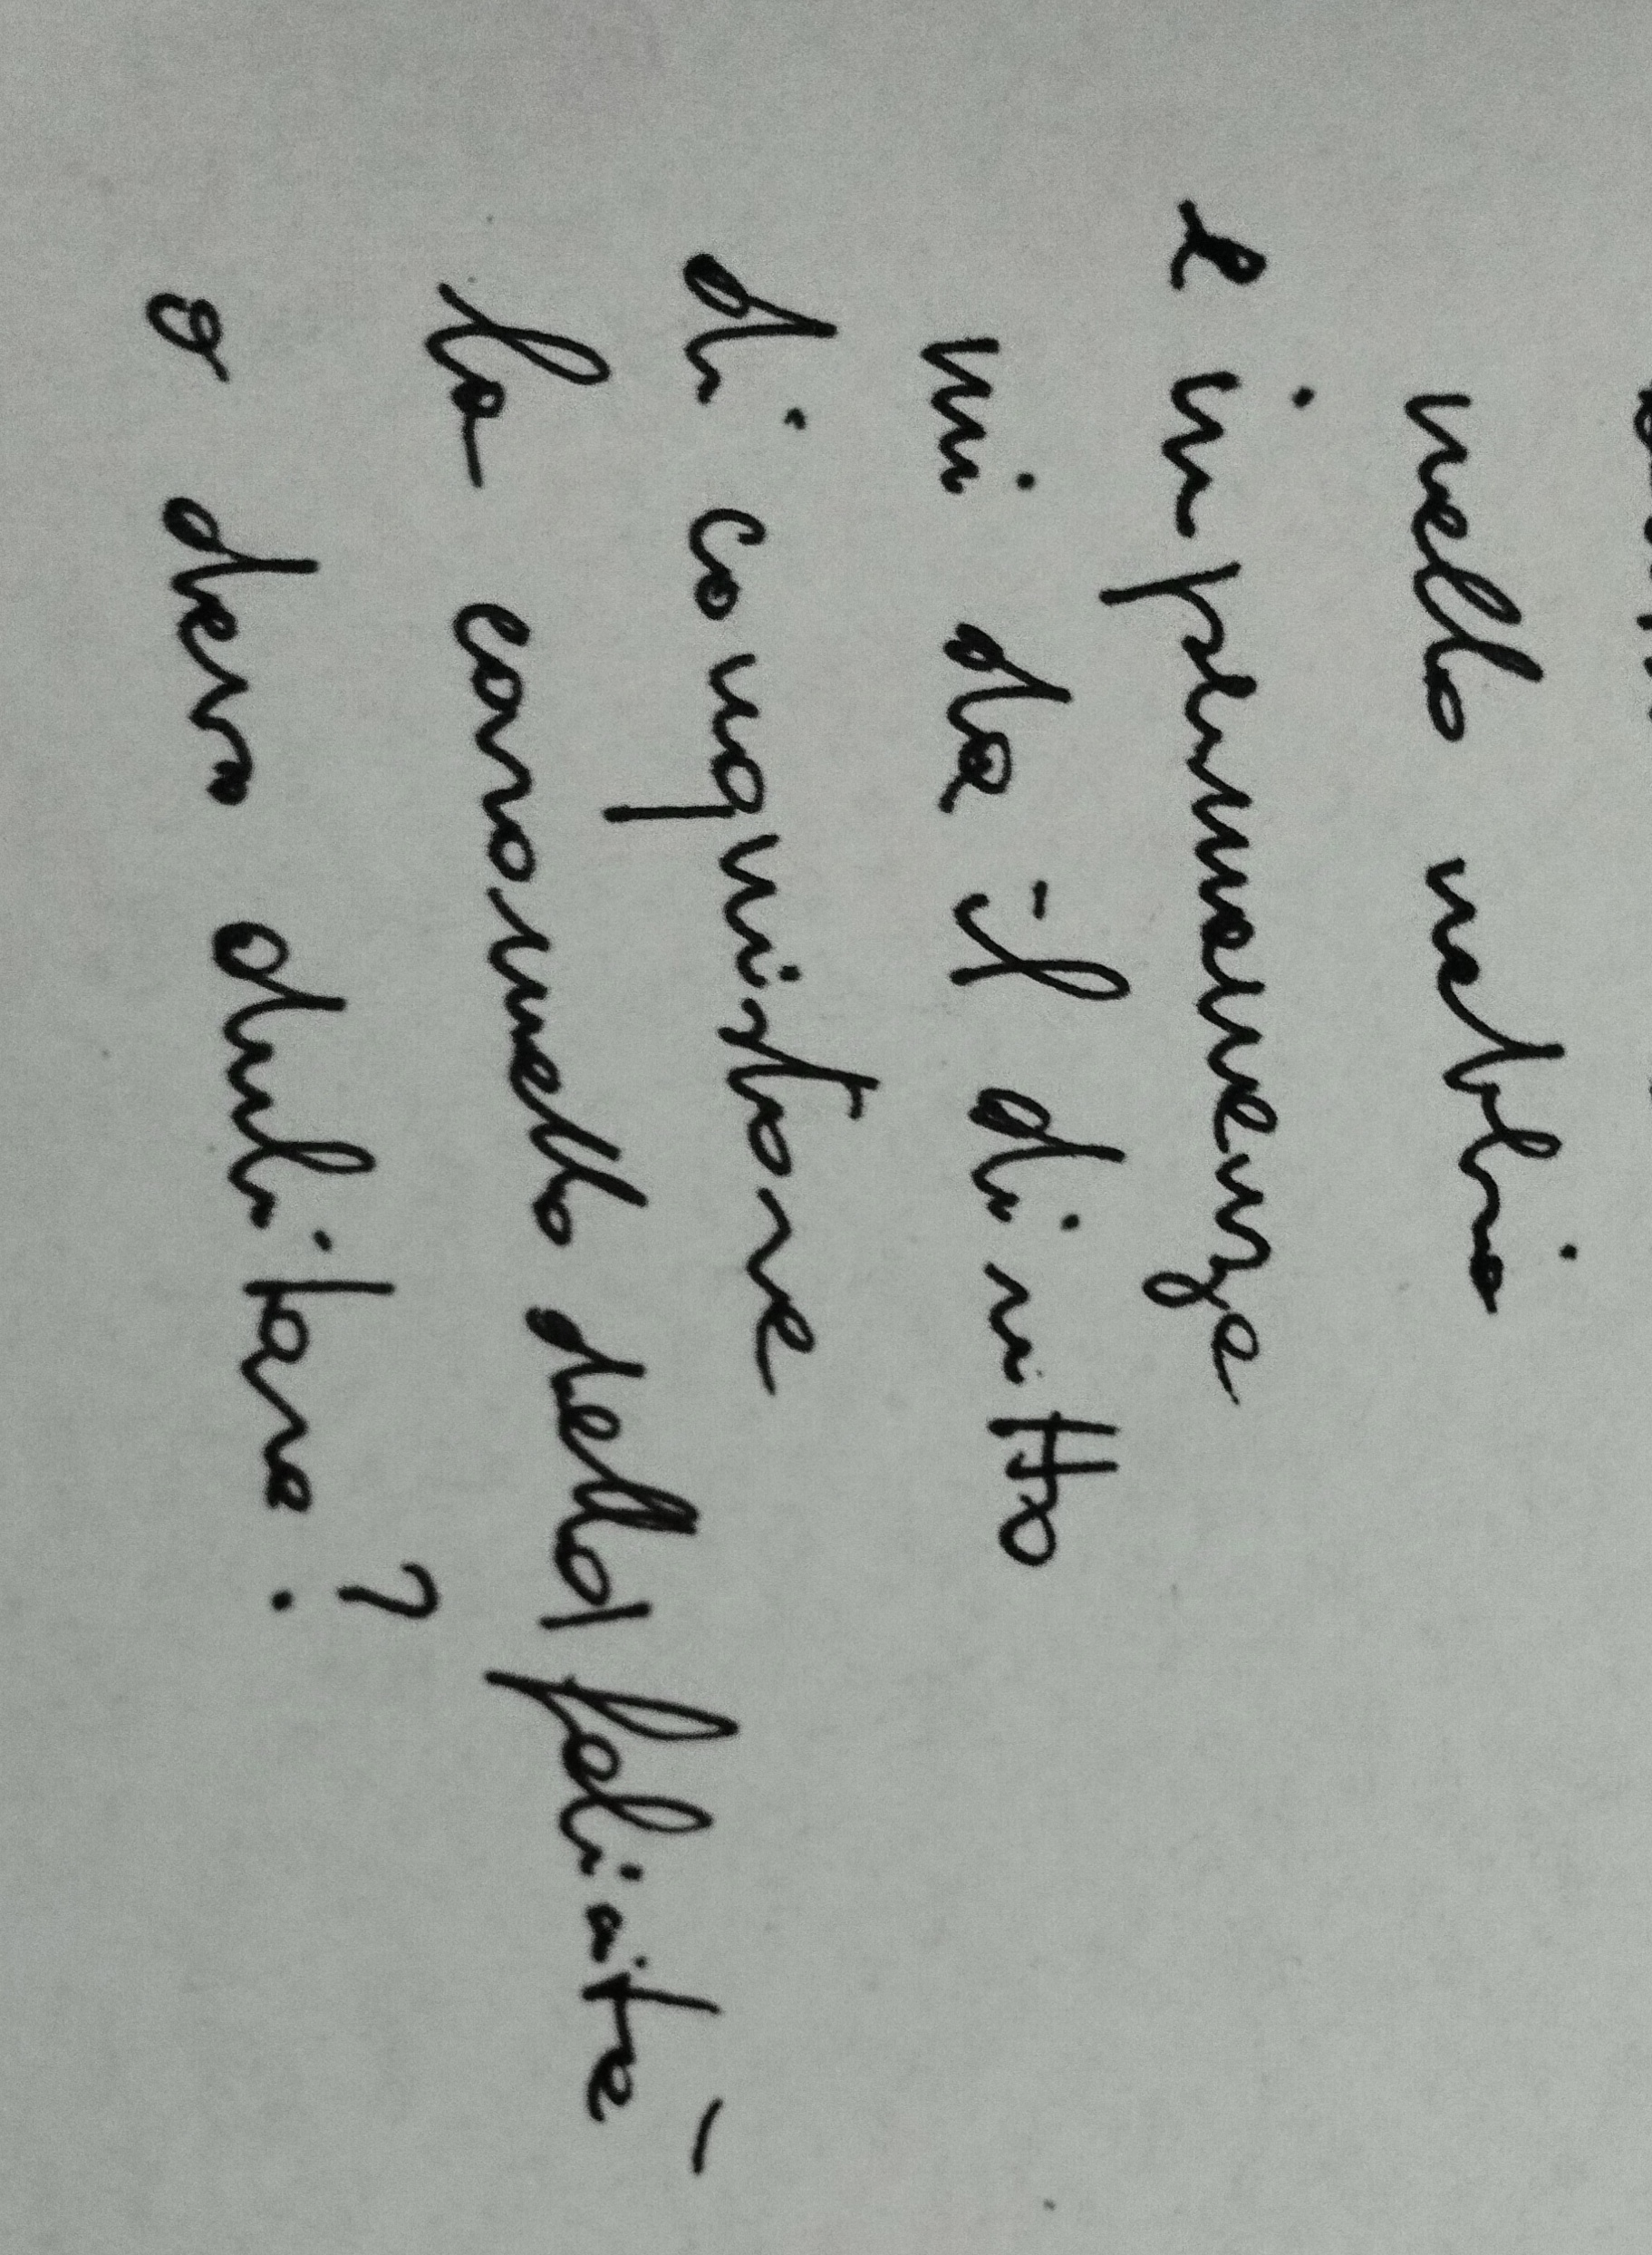 nella nebbia
e in permanenza
mi da il diritto
di conquistare
la caramella della felicità
o devo dubitare?